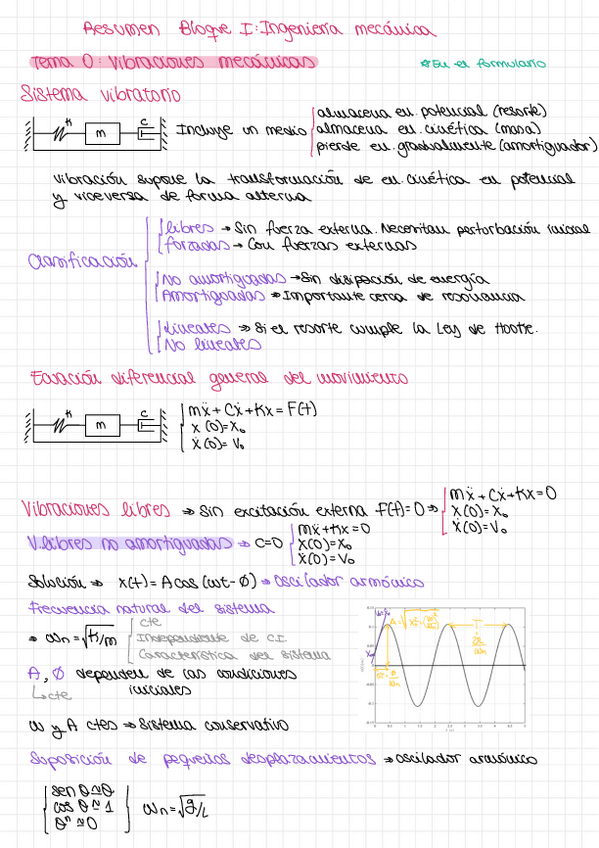 Resumen Bloque I: Ingeniería mecánica
Tema 0: Vibraciones mecánicas
*En el formulario
Sistema vibratorio
K m C
Incluye un medio
almacena en. potencial (resorte)
almacena en. cinética (masa)
pierde en. gradualmente (amortiguador)
Vibración supone la transformación de en. cinética en potencial
y viceversa de forma alterna
Clasificación
libres → Sin fuerza externa. Necesitan perturbación inicial
forzadas → Con fuerzas externas
No amortiguadas → Sin disipación de energía
Amortiguadas → Importante cerca de resonancia
Lineales → Si el resorte cumple la Ley de Hooke.
No lineales
Ecuación diferencial general del movimiento
K m C
mẍ + Cẋ + Kx = F(t)
x(0)=X₀
ẋ(0)=V₀
Vibraciones libres → Sin excitación externa F(t)=0 →
mẍ + Cẋ + Kx = 0
X(0)=X₀
ẋ(0)=V₀
V. libres no amortiguadas → C=0
mẍ + Kx = 0
X(0)=X₀
ẋ(0)=V₀
Solución → X(t) = A cos (ωt - Ø) → Oscilador armónico
Frecuencia natural del sistema
→ ωn = √K/m
cte
Independiente de C.I.
Característica del sistema
A, Ø dependen de las condiciones
iniciales
↳ cte
ω y A ctes → Sistema conservativo
Suposición de pequeños desplazamientos → oscilador armónico
sen θ ≃ θ
cos θ ≃ 1
θⁿ ≃ 0
ωn = √g/L